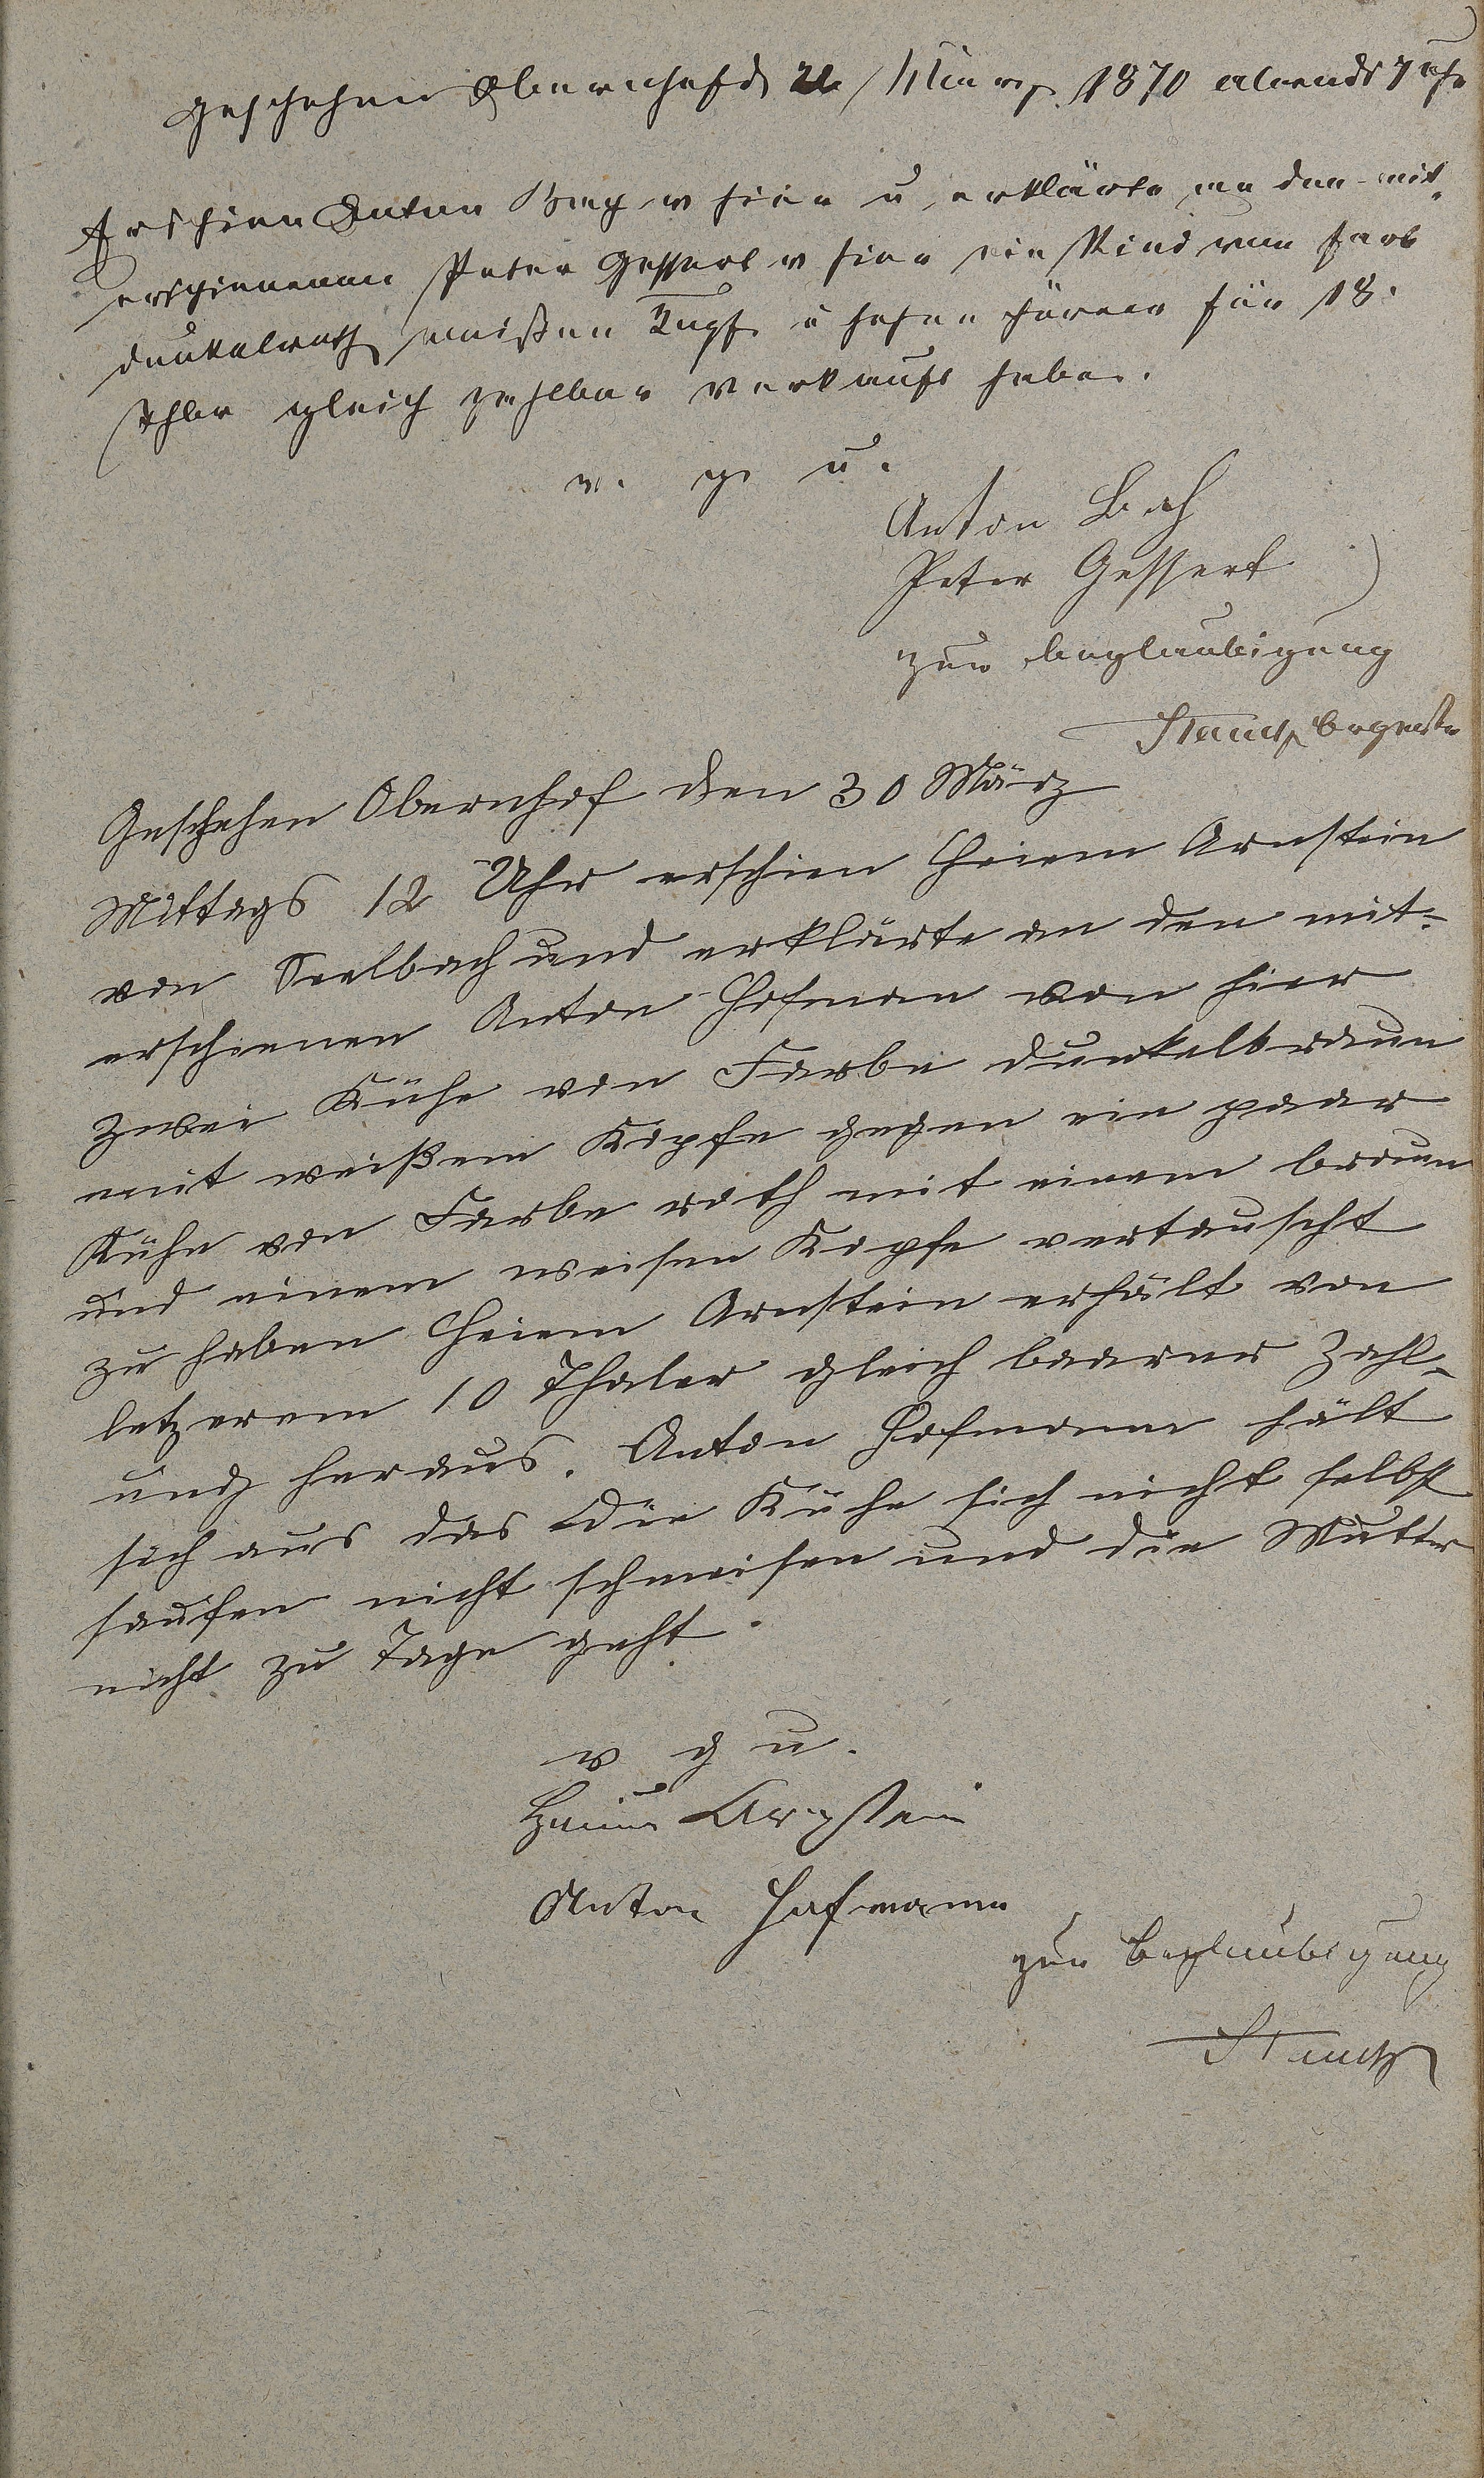 Geschehen Obernhof d 22 März 1870 abends 7 Uhr
Erschien Anton Bach v hier u erklärte an den mit-
erschienenen Peter Gessert v hier ein Rind von Farb
dunkelroth weißen Kopf u hohen Hörner für 18
Thlr gleich zahlbar verkauft habe.
v. g. u.
Anton Bach
Peter Gessert
zur beglaubigung
Stautz
Geschehen Obernhof den 30 März
Mittags 12 Uhr erschien Heiem Arnstein
von Seelbach und erklärte an den mit-
erschienen Anton Hofman von hier
zwei Kühe von Farbe dunkelbraun
mit weißem Kopfe gegen ein paar
Kühe von Farbe roth mit einem braun
und einem weisen Kopfe vertauscht
zu haben Heiem Arnstein erhält von
letzerem 10 Thaler gleich baarer Zahl-
ung heraus. Anton Hofmann hält
sich aus das die Kühe sich nicht selbst
saufen nicht schmeisen und die Mutter
nicht zu Tage geht.
v g u.
Heium Arnstein
Anton Hofmann
zur Beglaubigung
Stautz